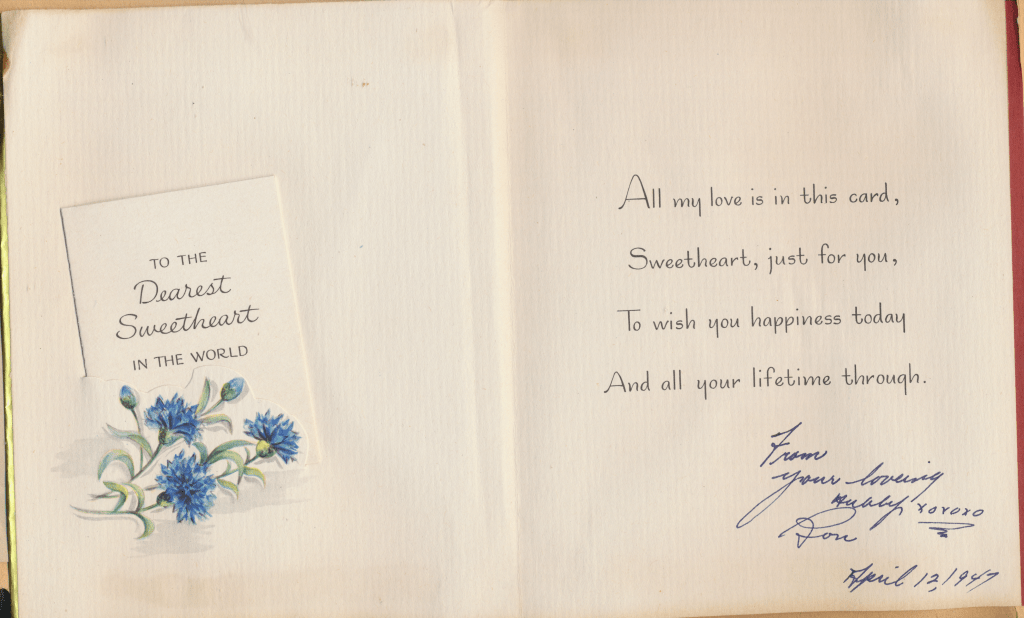 TO THE
Dearest
Sweetheart
IN THE WORLD
All my love is in this card,
Sweetheart, just for you,
To wish you happiness today
And all your lifetime through.
From
your loveing
Hubby xoxoxo
Ron
April 12, 1947